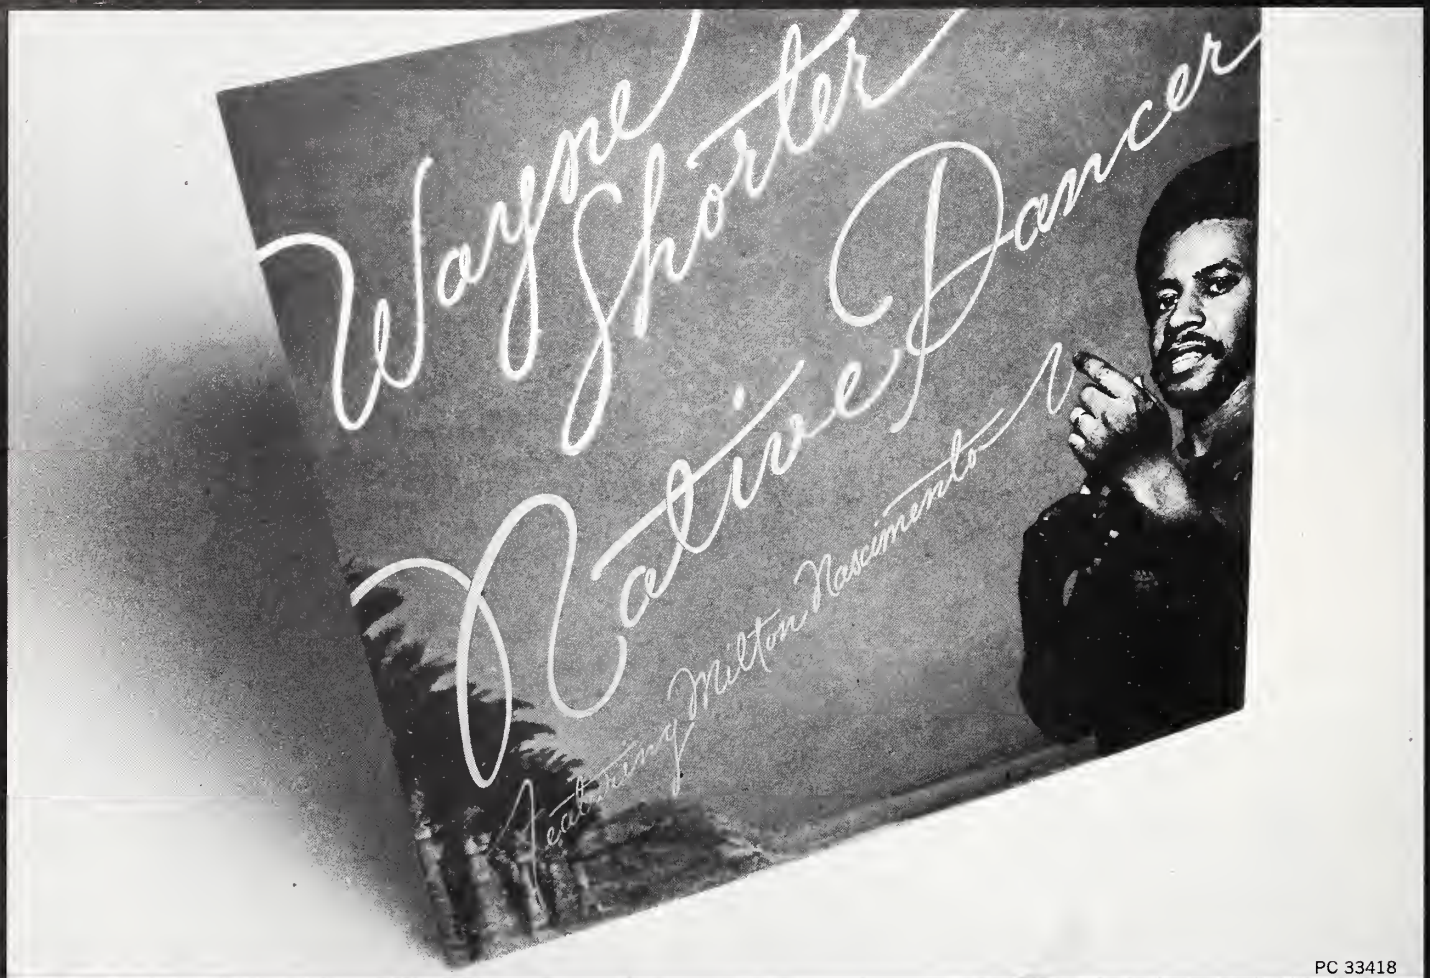 Wayne
Shorter
Native Dancer
Featuring Milton Nascimento
PC 33418